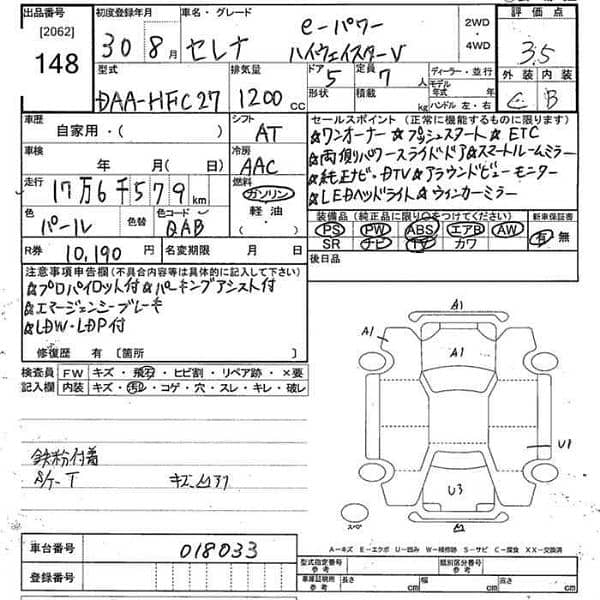 出品番号 初度登録年月 車名・グレード 2WD 評価点
[2062] 30 8月 セレナ e-パワー ・4WD 3.5
148 ハイウェイスターV 外装 内装
型式 排気量 ドア 定員 ディーラー・並行 C B
DAA-HFC27 1200cc 5 7人 モデル年式 年
形状 積載 kg ハンドル 左・右
車歴 自家用・( ) シフト AT セールスポイント (正常に機能するものに限ります)
☆ワンオーナー ☆プッシュスタート ☆ETC
車検 年 月( 日) 冷房 AAC ☆両側パワースライドドア ☆スマートルームミラー
☆純正ナビ・DTV ☆アラウンドビューモニター
走行 17万6千579km 燃料 ガソリン ☆LEDヘッドライト ☆ウィンカーミラー
軽油
色 パール 色替 色コード QAB ・( ) 装備品 (純正品に限り○をつけてください) 新車保証書
PS PW ABS エアB AW 有・無
R券 10,190円 名変期限 月 日 SR ナビ TV カワ
後日品
注意事項申告欄 (不具合内容等は具体的に記入して下さい)
☆プロパイロット付 ☆パーキングアシスト付
☆エマージェンシーブレーキ
☆LDW・LDP付
修復歴 有 〔箇所 〕
検査員 FW キズ・飛石・ヒビ割・リペア跡・×要
記入欄 内装 キズ・汚れ・コゲ・穴・スレ・キレ・破レ
A1
A1
A1
U1
U3
スペア
鉄粉付着
キズ凹アリ
A-キズ E-エクボ U-凹み W-補修跡 S-サビ C-腐食 XX-交換済
車台番号 018033
型式指定番号 参考 類別区分番号 参考
登録番号 車庫証明所 参考 長さ cm 幅 cm 高さ cm